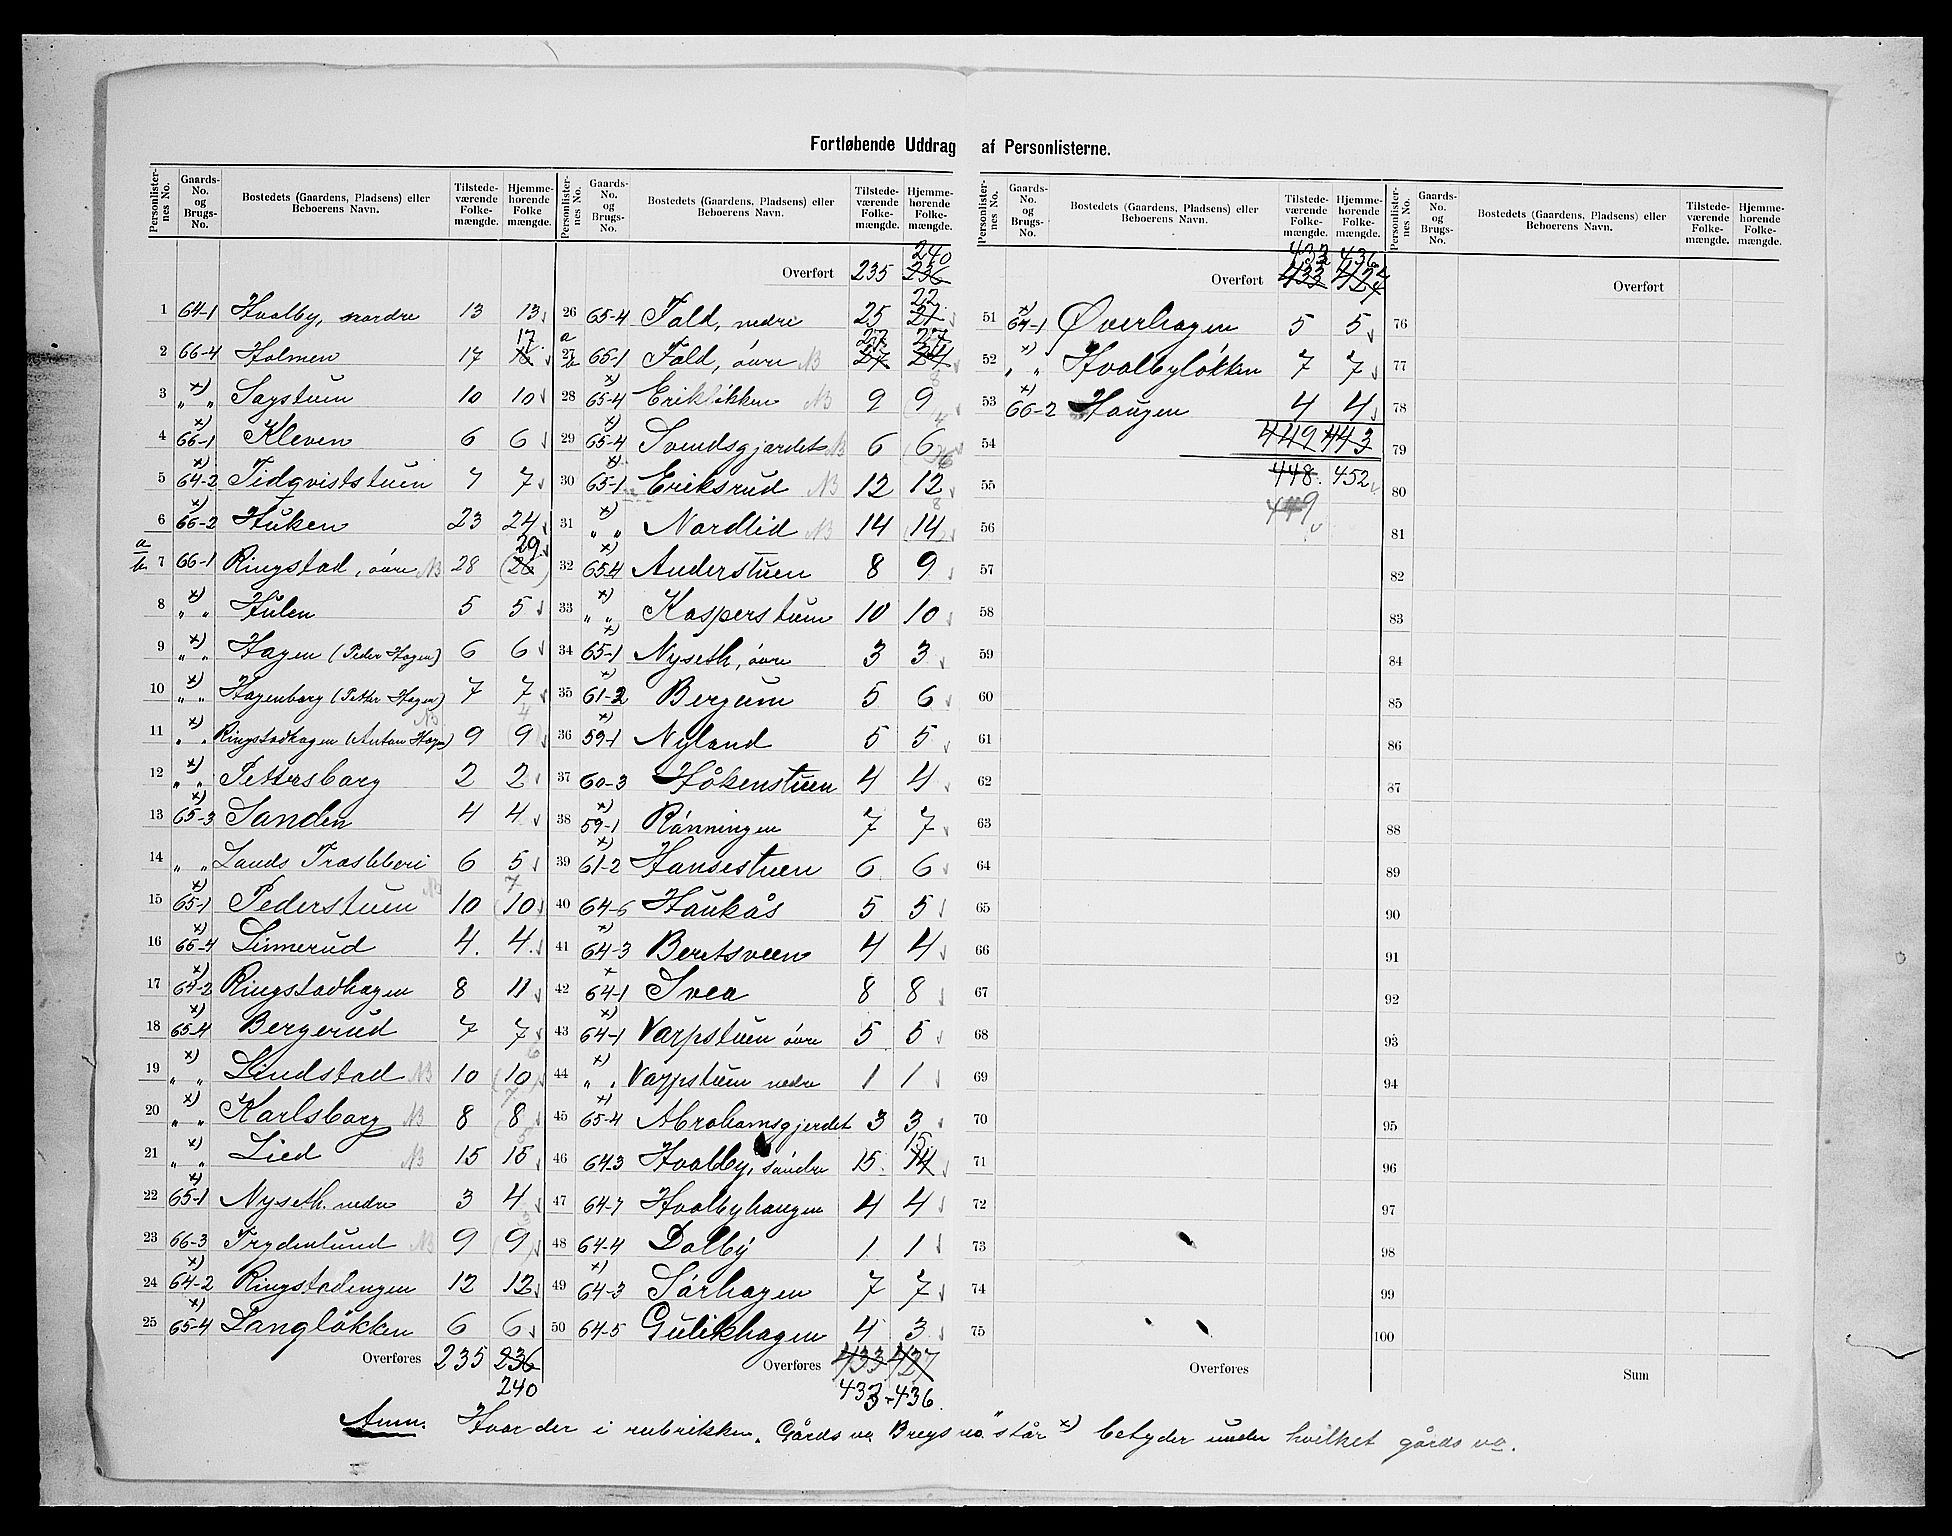 Fortløbende Uddrag af Personlisterne.
Personlisternes No. | Gaards-No. og Brugs-No. | Bostedets (Gaardens, Pladsens) eller Beboerens Navn. | Tilstedeværende Folkemængde. | Hjemmehørende Folkemængde.
1 64-1 Hvalby, nordre 13 13
2 66-4 Holmen 17 17
3 x) „ „ Sagstuen 10 10
4 x) 66-1 Kleven 6 6
5 x) 64-2 Tidqviststuen 7 7
6 x) 66-2 Huken 23 24
a/b 7 66-1 Ringstad, øvre NB 28 (26) 29
8 x) „ „ Hulen 5 5
9 x) „ „ Hagen (Peder Hagen) 6 6
10 x) „ „ Hagenborg (Petter Hagen) 7 7
11 x) „ „ Ringstadhagen (Anton Hagen) NB 9 9
12 x) „ „ Pettersborg 2 2
13 x) 65-3 Sanden 4 4
14 „ „ Lands Træsliberi 6 5
15 x) 65-1 Pederstuen NB 10 10
16 x) 66-4 Linnerud 4. 4.
17 x) 64-2 Ringstadhagen 8 11
18 x) 65-4 Bergerud 7 7
19 x) „ „ Lindstad NB 10 (10)
20 x) „ „ Karlsborg NB 8 8
21 x) „ „ Lied NB 15 15
22 x) 65-1 Nyseth nedre 3 4
23 66-3 Frydenlund NB 9 9
24 x) 64-2 Ringstadengen 12 12
25 x) 65-4 Langløkken 6 6
Overføres 235 236
240
Overført 235 236 240
26 65-4 Fald, nedre 25 21 22
a 27 b 65-1 Fald, øvre NB 27 24 27 27
28 x) 65-4 Erikløkken NB 9 9
29 x) 65-4 Svendsgjærdet NB 6 6
30 x) 65-1 Eriksrud NB 12 12
31 x) „ „ Nordlid NB 14 14
32 x) 65-4 Anderstuen 8 9
33 x) „ „ Kasperstuen 10 10
34 x) 65-1 Nyseth, øvre 3 3
35 x) 61-2 Bergum 5 6
36 x) 59-1 Nyland 5 5
37 60-3 Håkenstuen 4 4
38 x) 59-1 Rønningen 7 7
39 x) 61-2 Hansestuen 6 6
40 64-6 Haukås 5 5
41 x) 64-3 Beretsveen 4 4
42 x 64-1 Svea 8 8
43 x) 64-1 Varpstuen øvre 5 5
44 x) „ „ Varpstuen nedre 1 1
45 x) 65-4 Abrahamsgjerdet 3 3
46 64-3 Hvalby, søndre 15 14 15
47 64-7 Hvalbyhaugen 4 4
48 64-4 Dalby 1 1
49 x) 64-3 Sørhagen 7 7
50 64-5 Gulikhagen 4 3
Overføres 433 427
433 436.
Overført 433 427
433 436
51 x) 64-1 Øverhagen 5 5
52 x) „ „ Hvalbyløkken 7 7
53 x) 66-2 Haugen 4 4
54 449 443
55 448. 452
56 449
57
58
59
60
61
62
63
64
65
66
67
68
69
70
71
72
73
74
75
Overføres
Overført
76
77
78
79
80
81
82
83
84
85
86
87
88
89
90
91
92
93
94
95
96
97
98
99
100
Sum
Anm. Hvor der i rubrikken „Gårds no Brugs no." står x) betyder under hvilket gårds no.